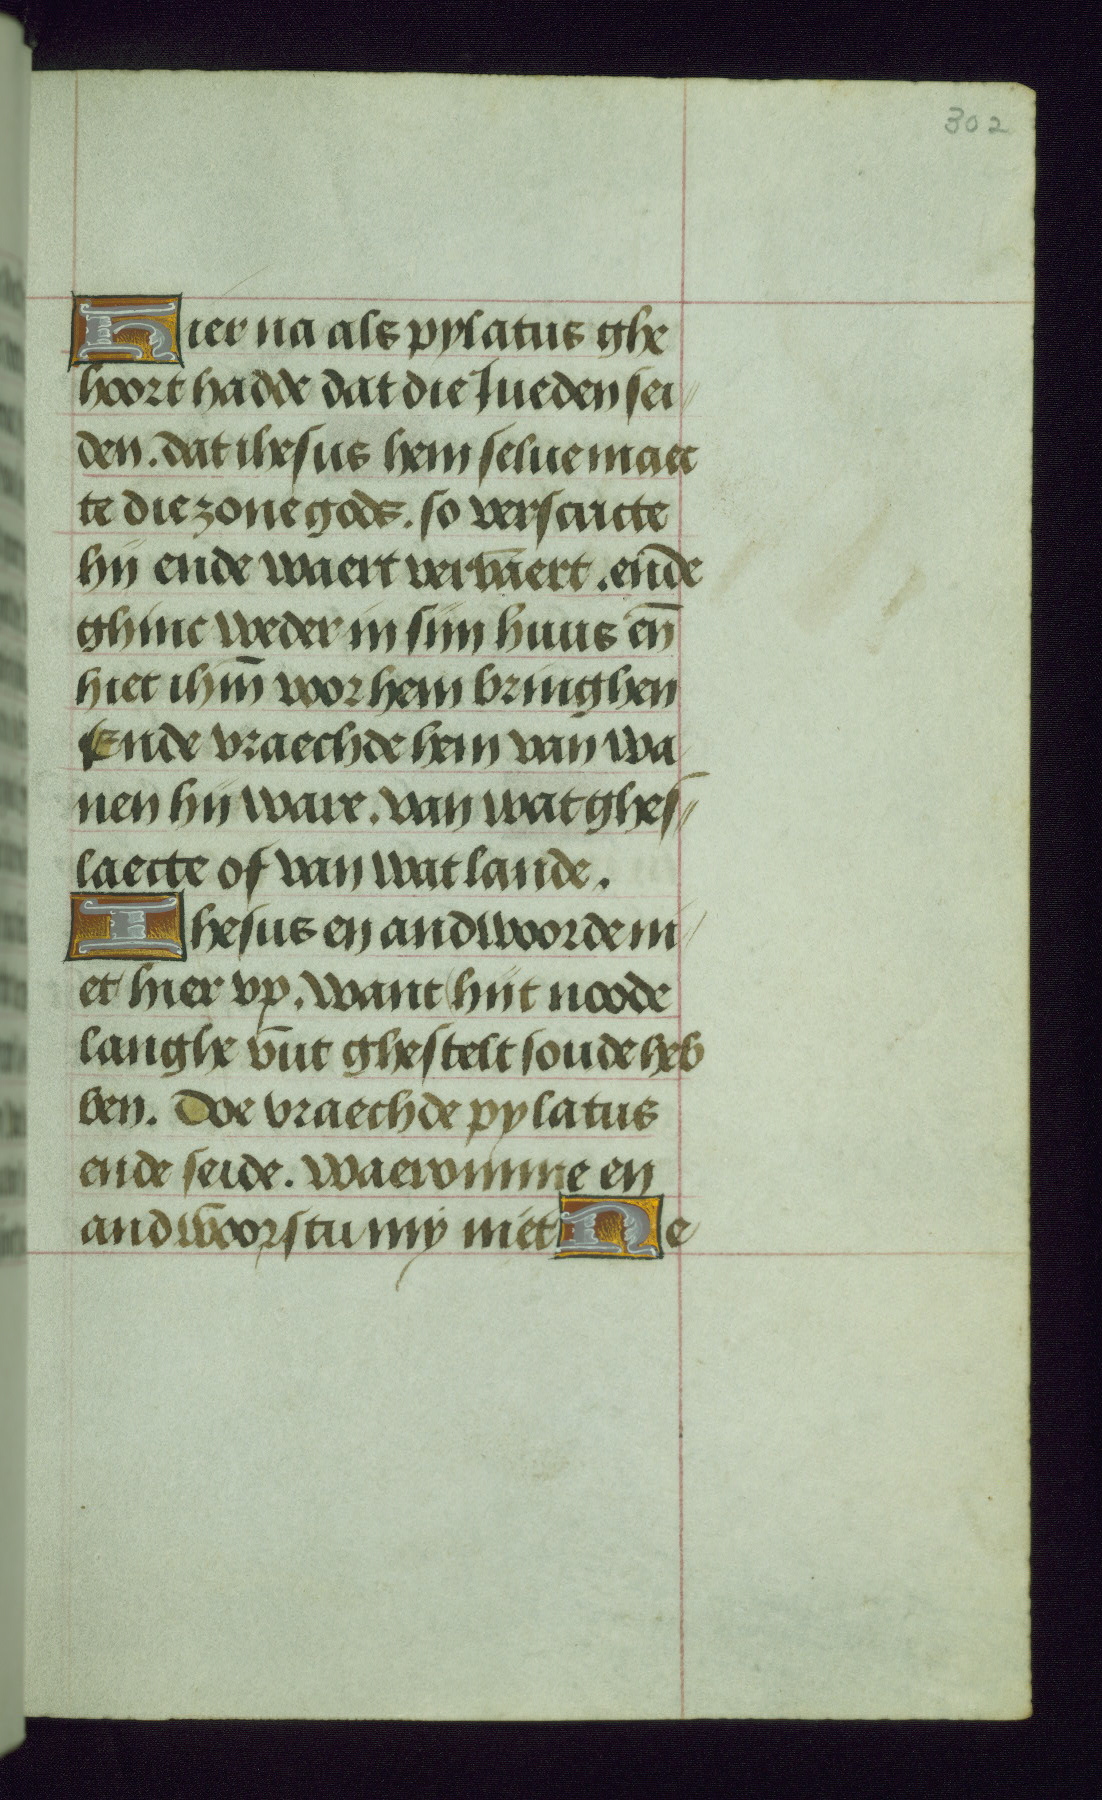 302
Hier na als pylatus ghe
hoort hadde dat die Jueden sei⸗
den. dat ihesus hem selue maec
te die zone gods. so verscricte
hij ende waert vervaert. ende
ghinc weder in sijn huus eñ
hiet ihm̄ voor hem bringhen
Ende vraechde hem van wa
nen hij ware. van wat ghes⸗
laecte of van wat lande.
Ihesus en andwoorde ni⸗
et hier vp. want hijt noode
langhe vūt ghestelt soude heb
ben. Doe vraechde pylatus
ende seide. waeromme en
andwoorstu my niet Ne